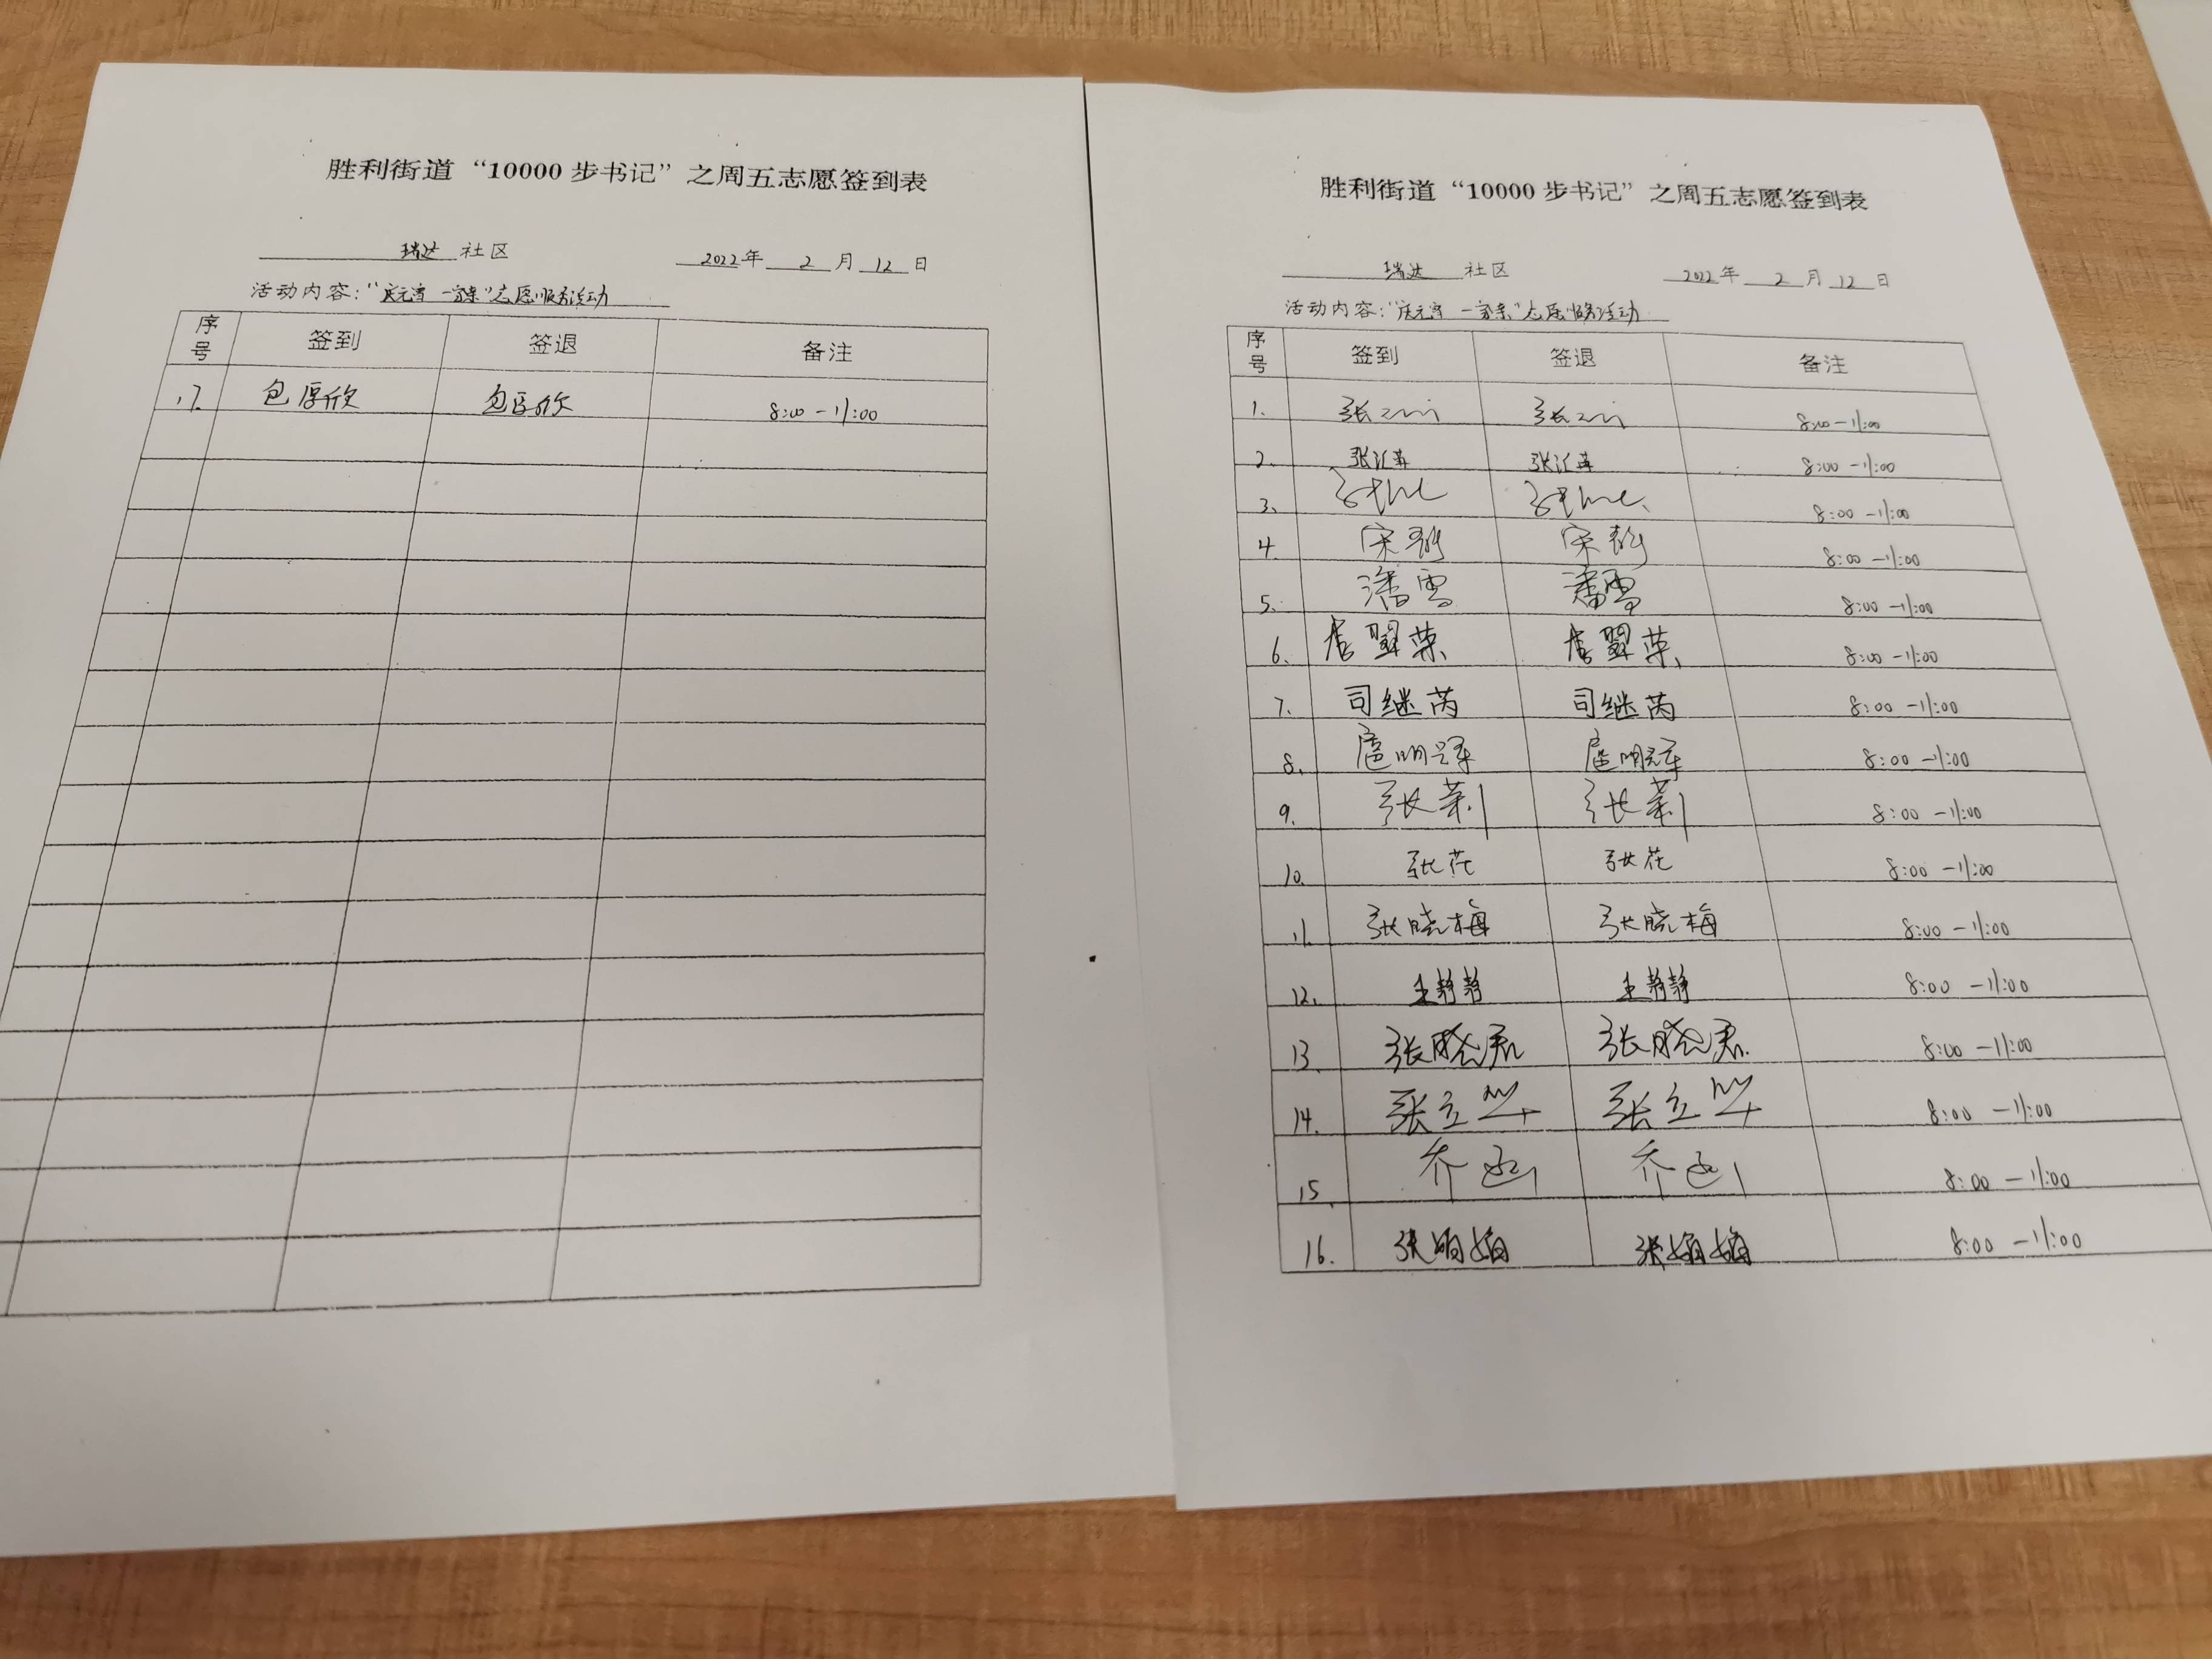 胜利街道“10000步书记”之周五志愿签到表
瑞达 社区 2022年 2 月 12 日
活动内容：“庆元宵 一家亲”志愿服务活动
序号 签到 签退 备注
17. 包厚欣 包厚欣 8:00-11:00
胜利街道“10000步书记”之周五志愿签到表
瑞达 社区 2022年 2 月 12 日
活动内容：“庆元宵 一家亲”志愿服务活动
序号 签到 签退 备注
1. 张 张 8:00-11:00
2. 8:00-11:00
3. 8:00-11:00
4. 宋 宋 8:00-11:00
5. 潘雪 潘雪 8:00-11:00
6. 8:00-11:00
7. 司继芮 司继芮 8:00-11:00
8. 扈明 扈明 8:00-11:00
9. 张莉 张莉 8:00-11:00
10. 张花 张花 8:00-11:00
11. 张晓梅 张晓梅 8:00-11:00
12. 王静静 王静静 8:00-11:00
13. 张晓君 张晓君. 8:00-11:00
14. 张立华 张立华 8:00-11:00
15. 乔 乔 8:00-11:00
16. 张娟娟 张娟娟 8:00-11:00